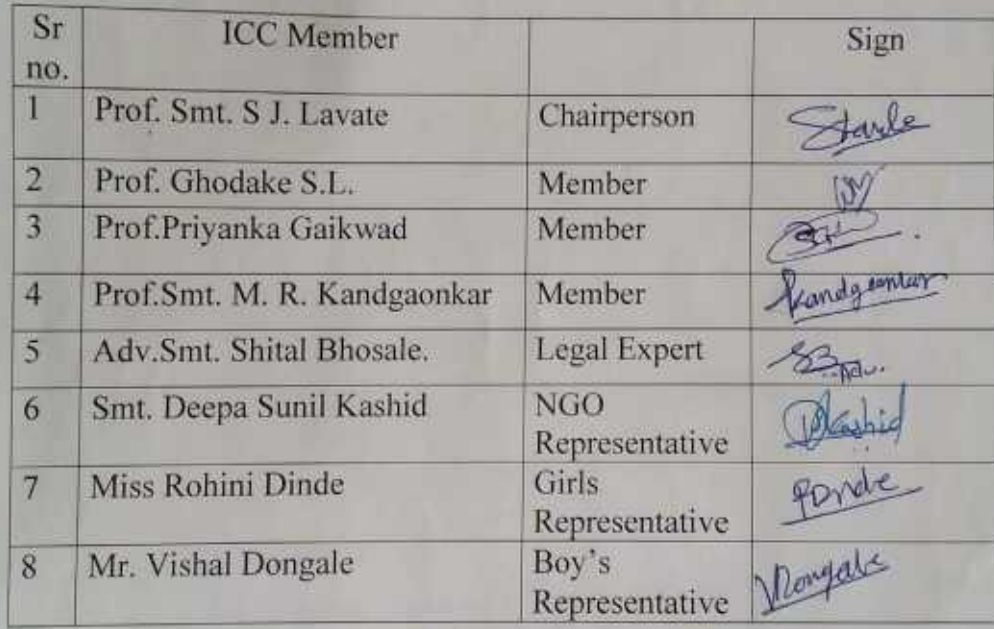 Sr no. ICC Member Sign
1 Prof. Smt. S J. Lavate Chairperson
2 Prof. Ghodake S.L. Member
3 Prof.Priyanka Gaikwad Member
4 Prof.Smt. M. R. Kandgaonkar Member Kandgaonkar
5 Adv.Smt. Shital Bhosale. Legal Expert
6 Smt. Deepa Sunil Kashid NGO Representative DKashid
7 Miss Rohini Dinde Girls Representative
8 Mr. Vishal Dongale Boy's Representative VDongale